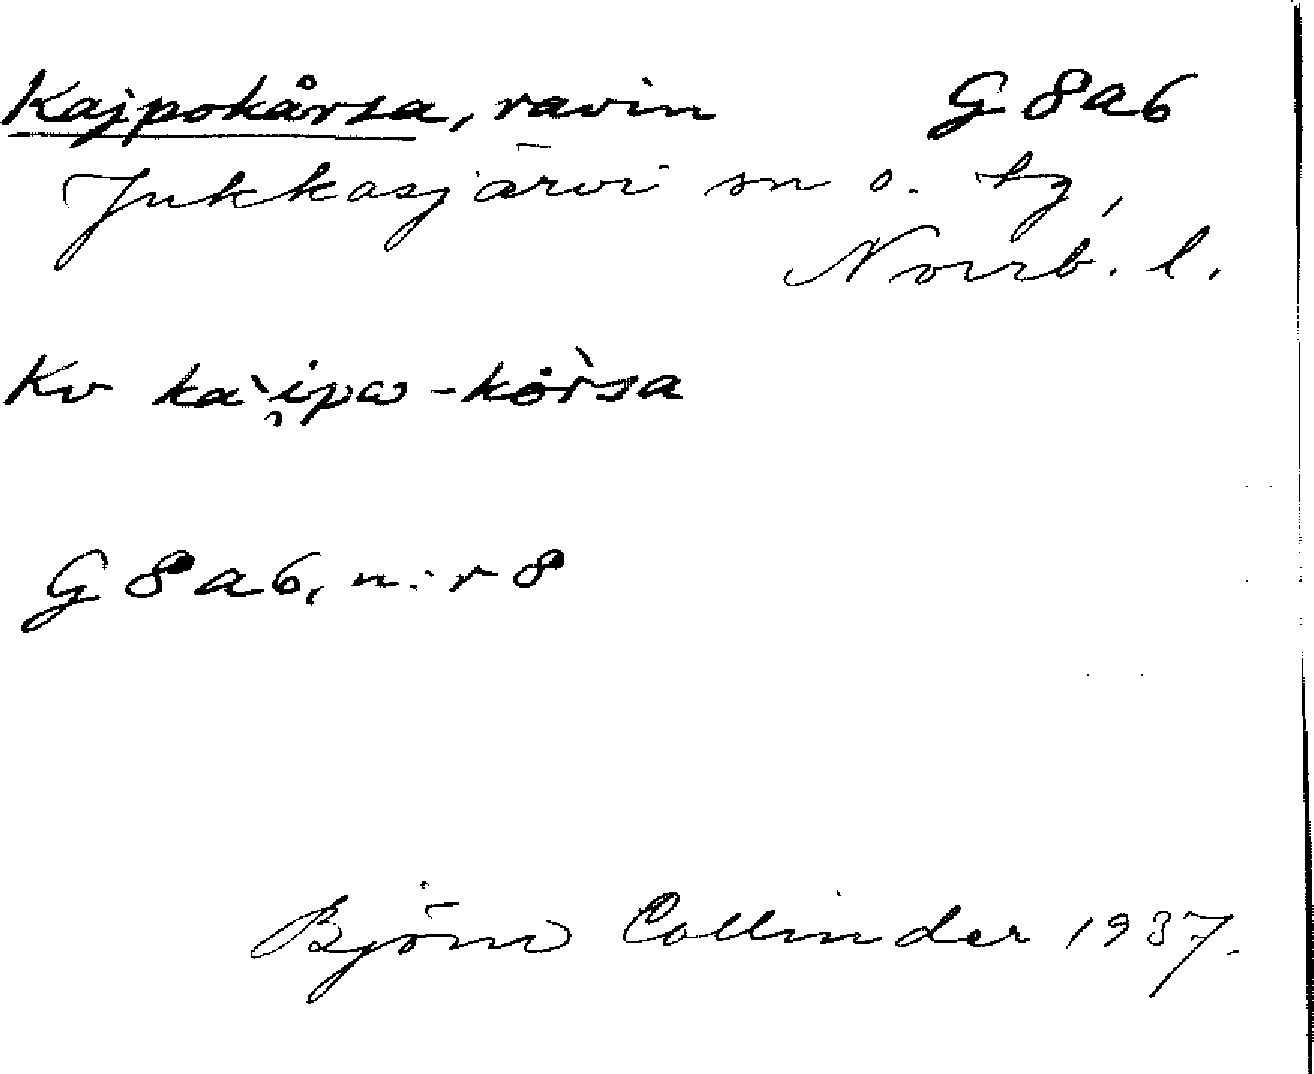 Kajpokårsa, ravin G 8 a 6
Jukkasjärvi sn o. tg,
Norrb. l.
Kv ka`i̯pω-kȯr̀sa
G 8 a 6, n:r 8
Björn Collinder 1937.